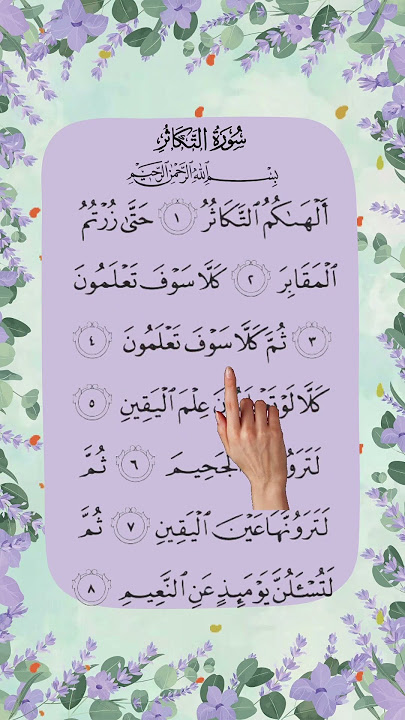 سُورَةُ التَّكَاثُرِ
بِسْمِ اللَّهِ الرَّحْمَٰنِ الرَّحِيمِ
أَلْهَىٰكُمُ التَّكَاثُرُ ١ حَتَّىٰ زُرْتُمُ
الْمَقَابِرَ ٢ كَلَّا سَوْفَ تَعْلَمُونَ
٣ ثُمَّ كَلَّا سَوْفَ تَعْلَمُونَ ٤
كَلَّا لَوْ عِلْمَ الْيَقِينِ ٥
الْجَحِيمَ ٦ ثُمَّ
لَتَرَوُنَّهَا عَيْنَ الْيَقِينِ ٧ ثُمَّ
لَتُسْـَٔلُنَّ يَوْمَئِذٍ عَنِ النَّعِيمِ ٨